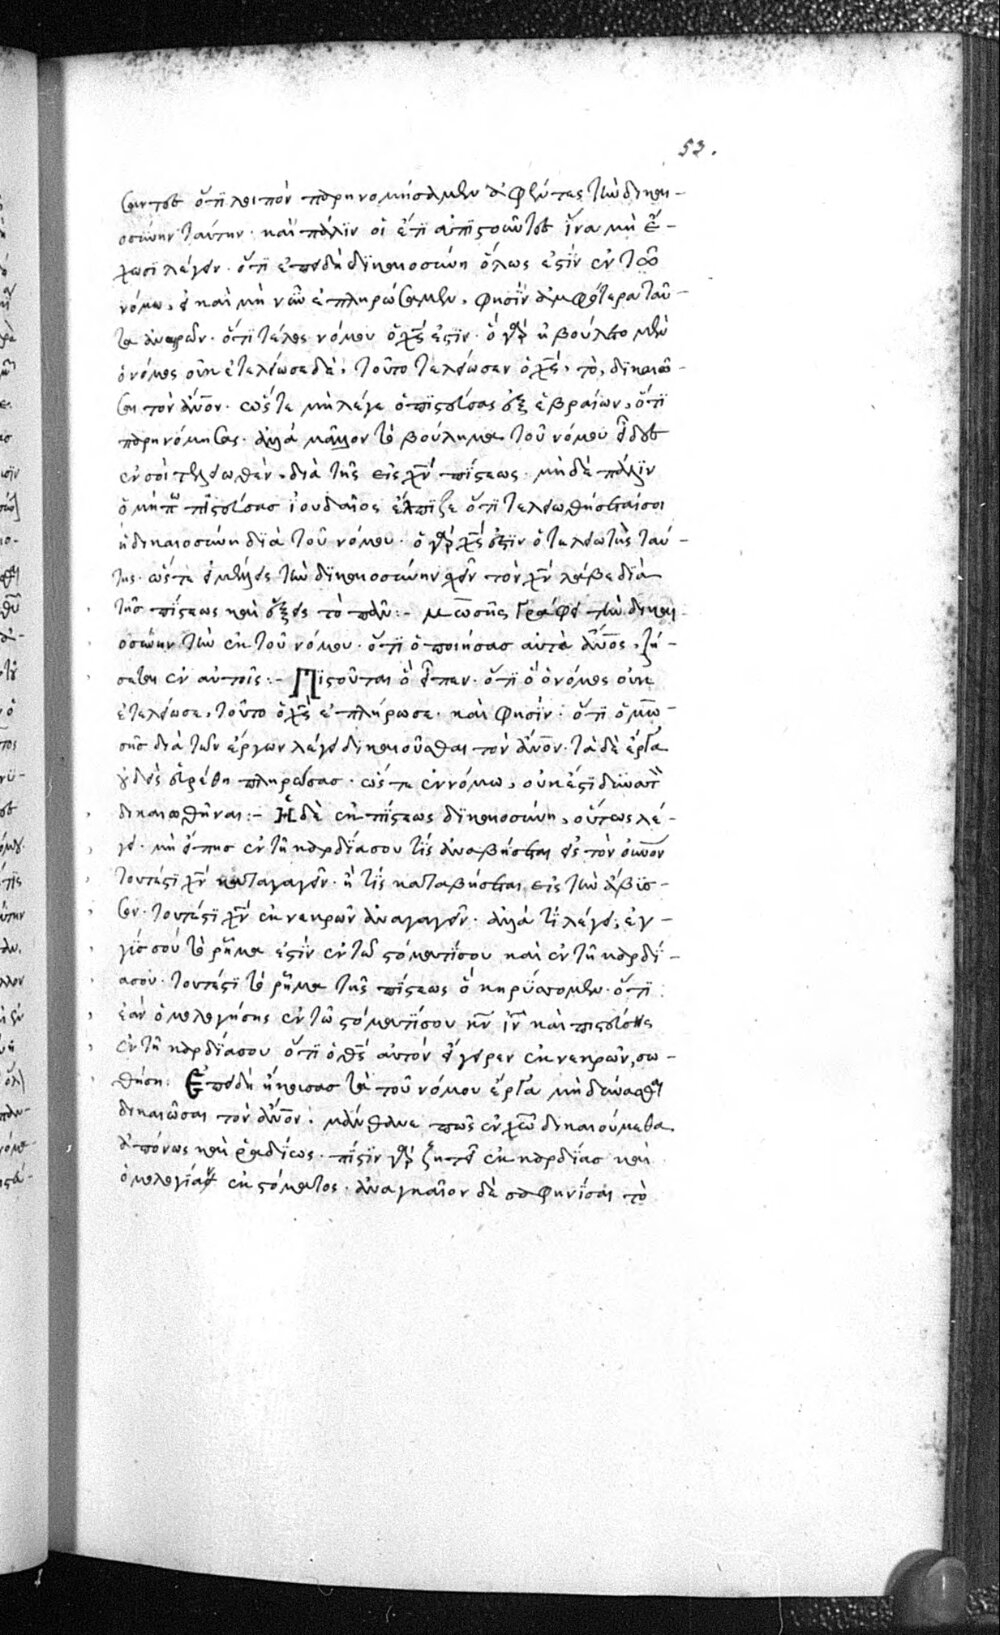 53.
σαντες ὅτι λοιπὸν παρηνομήσαμεν ἀφέντες τὴν δικαι-
οσύνην ταύτην. καὶ πάλιν οἱ ἔτι ἀπιστοῦντες ἵνα μὴ ἔ-
χωσι λέγειν. ὅτι ἐπειδὴ δικαιοσύνη ὅλως ἐστὶν ἐν τῶ
νόμω, εἰ καὶ μὴ νῦν ἐπληρώσαμεν. φησὶν ἀμφότερα ταῦ-
τα ἀναιρῶν. ὅτι τέλος νόμου ὁ χς ἐστιν. ὁ γὰρ ἠβούλετο μὲν
ὁ νόμος οὐκ ἐτελείωσε δὲ, τοῦτο τελείωσεν ὁ χς, τὸ, δικαιῶ-
σαι τὸν ἄνον. ὥστε μὴ λέγε ὁ πιστεύσας ἐξ ἑβραίων, ὅτι
παρηνόμησας. ἀλλὰ μᾶλλον τὸ βούλημα τοῦ νόμου εἶδες
ἐν σοὶ τελειωθὲν. διὰ τῆς εἰς χν πίστεως. μὴ δὲ πάλιν
ὁ μήπω πιστεύσας ἰουδαῖος ἔλπιζε ὅτι τελειωθήσεταί σοι
ἡ δικαιοσύνη διὰ τοῦ νόμου. ὁ γὰρ χς ἐστιν ὁ τελειωτὴς ταύ-
της. ὥστε εἰ μέλλεις τὴν δικαιοσύνην εὑρεῖν τὸν χν λάβε διὰ
τῆς πίστεως καὶ ἕξεις τὸ πᾶν:- Μωσῆς γράφει τὴν δικαι-
οσύνην τὴν ἐκ τοῦ νόμου. ὅτι ὁ ποιήσας αὐτὰ ἄνος, ζή-
σεται ἐν αὐτοῖς:- Πιστοῦται ὃ εἶπεν. ὅτι ὃ ὁ νόμος οὐκ
ἐτελείωσε, τοῦτο ὁ χς ἐπλήρωσε. καὶ φησὶν. ὅτι ὁ μω-
σῆς διὰ τῶν ἔργων λέγει δικαιοῦσθαι τὸν ἄνον. τὰ δὲ ἔργα
οὐδεὶς εὑρέθη πληρώσας. ὥστε ἐν νόμω, οὐκ ἔστι δυνατὸν
δικαιωθῆναι:- Ἡ δὲ ἐκ πίστεως δικαιοσύνη, οὕτως λέ-
γει. μὴ εἴπης ἐν τῆ καρδία σου τίς ἀναβήσεται εἰς τὸν οὐνον
τουτέστι χν καταγαγεῖν. ἢ τίς καταβήσεται εἰς τὴν ἄβυσ-
σον. τουτέστι χν ἐκ νεκρῶν ἀναγαγεῖν. ἀλλὰ τί λέγει, ἐγ-
γύς σου τὸ ῥῆμα ἐστὶν ἐν τῶ στόματί σου καὶ ἐν τῆ καρδί-
α σου. τουτέστι τὸ ῥῆμα τῆς πίστεως ὃ κηρύττομεν. ὅτι
ἐὰν ὁμολογήσης ἐν τῶ στόματί σου κν ιν καὶ πιστεύσης
ἐν τῆ καρδία σου ὅτι ὁ θς αὐτὸν ἤγειρεν ἐκ νεκρῶν, σω-
θήση: Ἐπειδὴ ἤκουσας τὰ τοῦ νόμου ἔργα μὴ δύνασθαι
δικαιῶσαι τὸν ἄνον. μάνθανε πῶς ἐν χω δικαιούμεθα.
ἀπόνως καὶ ῥαδίως. πίστιν γὰρ ζητεῖ ἐκ καρδίας καὶ
ὁμολογίαν ἐκ στόματος. ἀναγκαῖον δὲ σαφηνίσαι τὸ